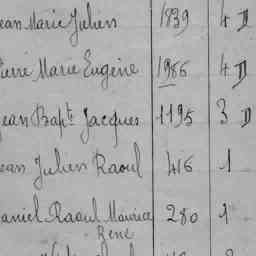 ean Marie Julien 1839 4 D
ierre Marie Eugène 1986 4 D
ean Bapte Jacques 1195 3 D
ean Julien Raoul 416 1
aniel Raoul Maurice 280 1
René